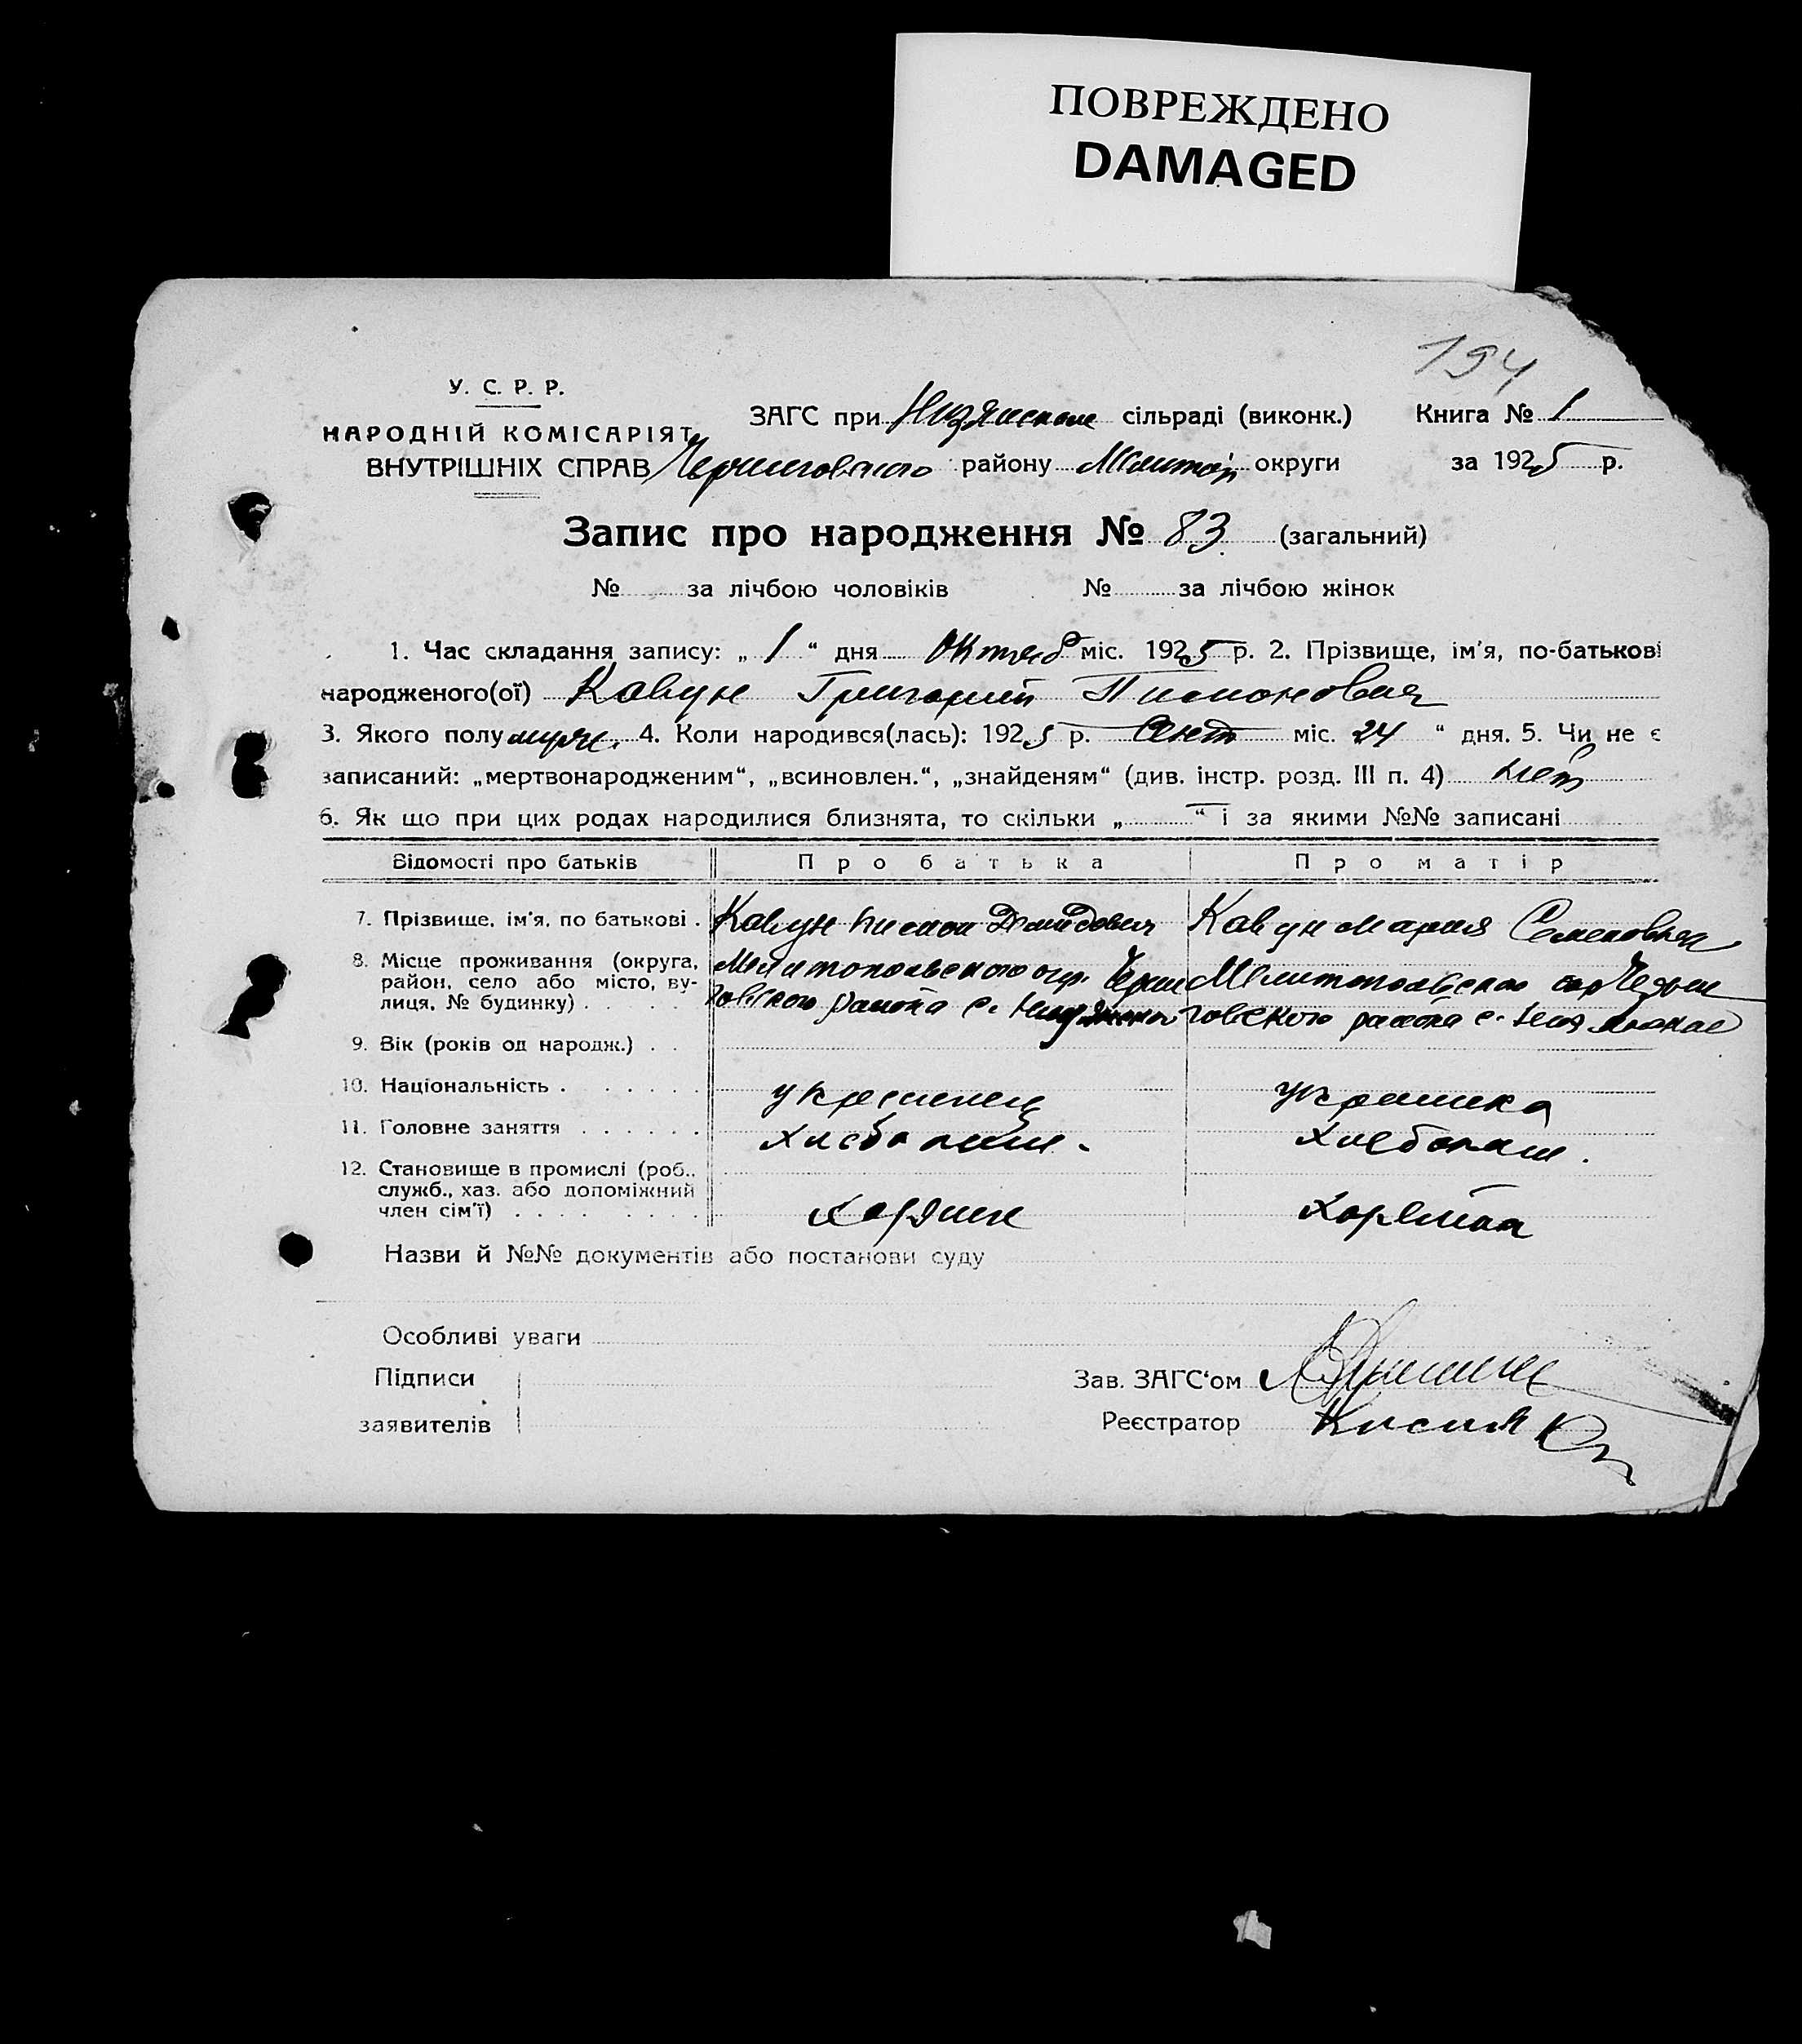 ПОВРЕЖДЕНО
DAMAGED
194
У. С. Р. Р.
НАРОДНІЙ КОМІСАРІЯТ
ВНУТРІШНІХ СПРАВ
ЗАГС при сільраді (виконк.)
Книга № 1
Черниговского району Мелитоп округи
за 1925 р.
Запис про народження № 83 (загальний)
№ за лічбою чоловіків № за лічбою жінок
1. Час складання запису: „ 1 “ дня Октяб міс. 1925 р. 2. Прізвище, ім'я, по-батькові
народженого(ої) Кавун Григорий Пимонович
3. Якого полу муж. 4. Коли народився(лась): 1925 р. Сент міс. 24 “ дня. 5. Чи не є
записаний: „мертвонародженим“, „всиновлен.“, „знайденям“ (див. інстр. розд. III п. 4) нет
6. Як що при цих родах народилися близнята, то скільки „ “ і за якими №№ записані
Відомості про батьків Про батька Про матір
7. Прізвище, ім'я, по батькові . Кавун Пимон Демидович Кавун Мария Семеновна
8. Місце проживання (округа, район, село або місто, вулиця, № будинку) . Мелитопольского окр. Черниговского района с. Мелитопольского окр Черниговского района с.
9. Вік (років од народж.) . .
10. Національність . . . . . . украинец украинка
11. Головне заняття . . . . . . хлебопаш. хлебопаш.
12. Становище в промислі (роб., служб., хаз. або допоміжний член сім'ї) . . . . хозяин хозяйка
Назви й №№ документів або постанови суду
Особливі уваги
Підписи
заявителів
Зав. ЗАГС‘ом
Реєстратор